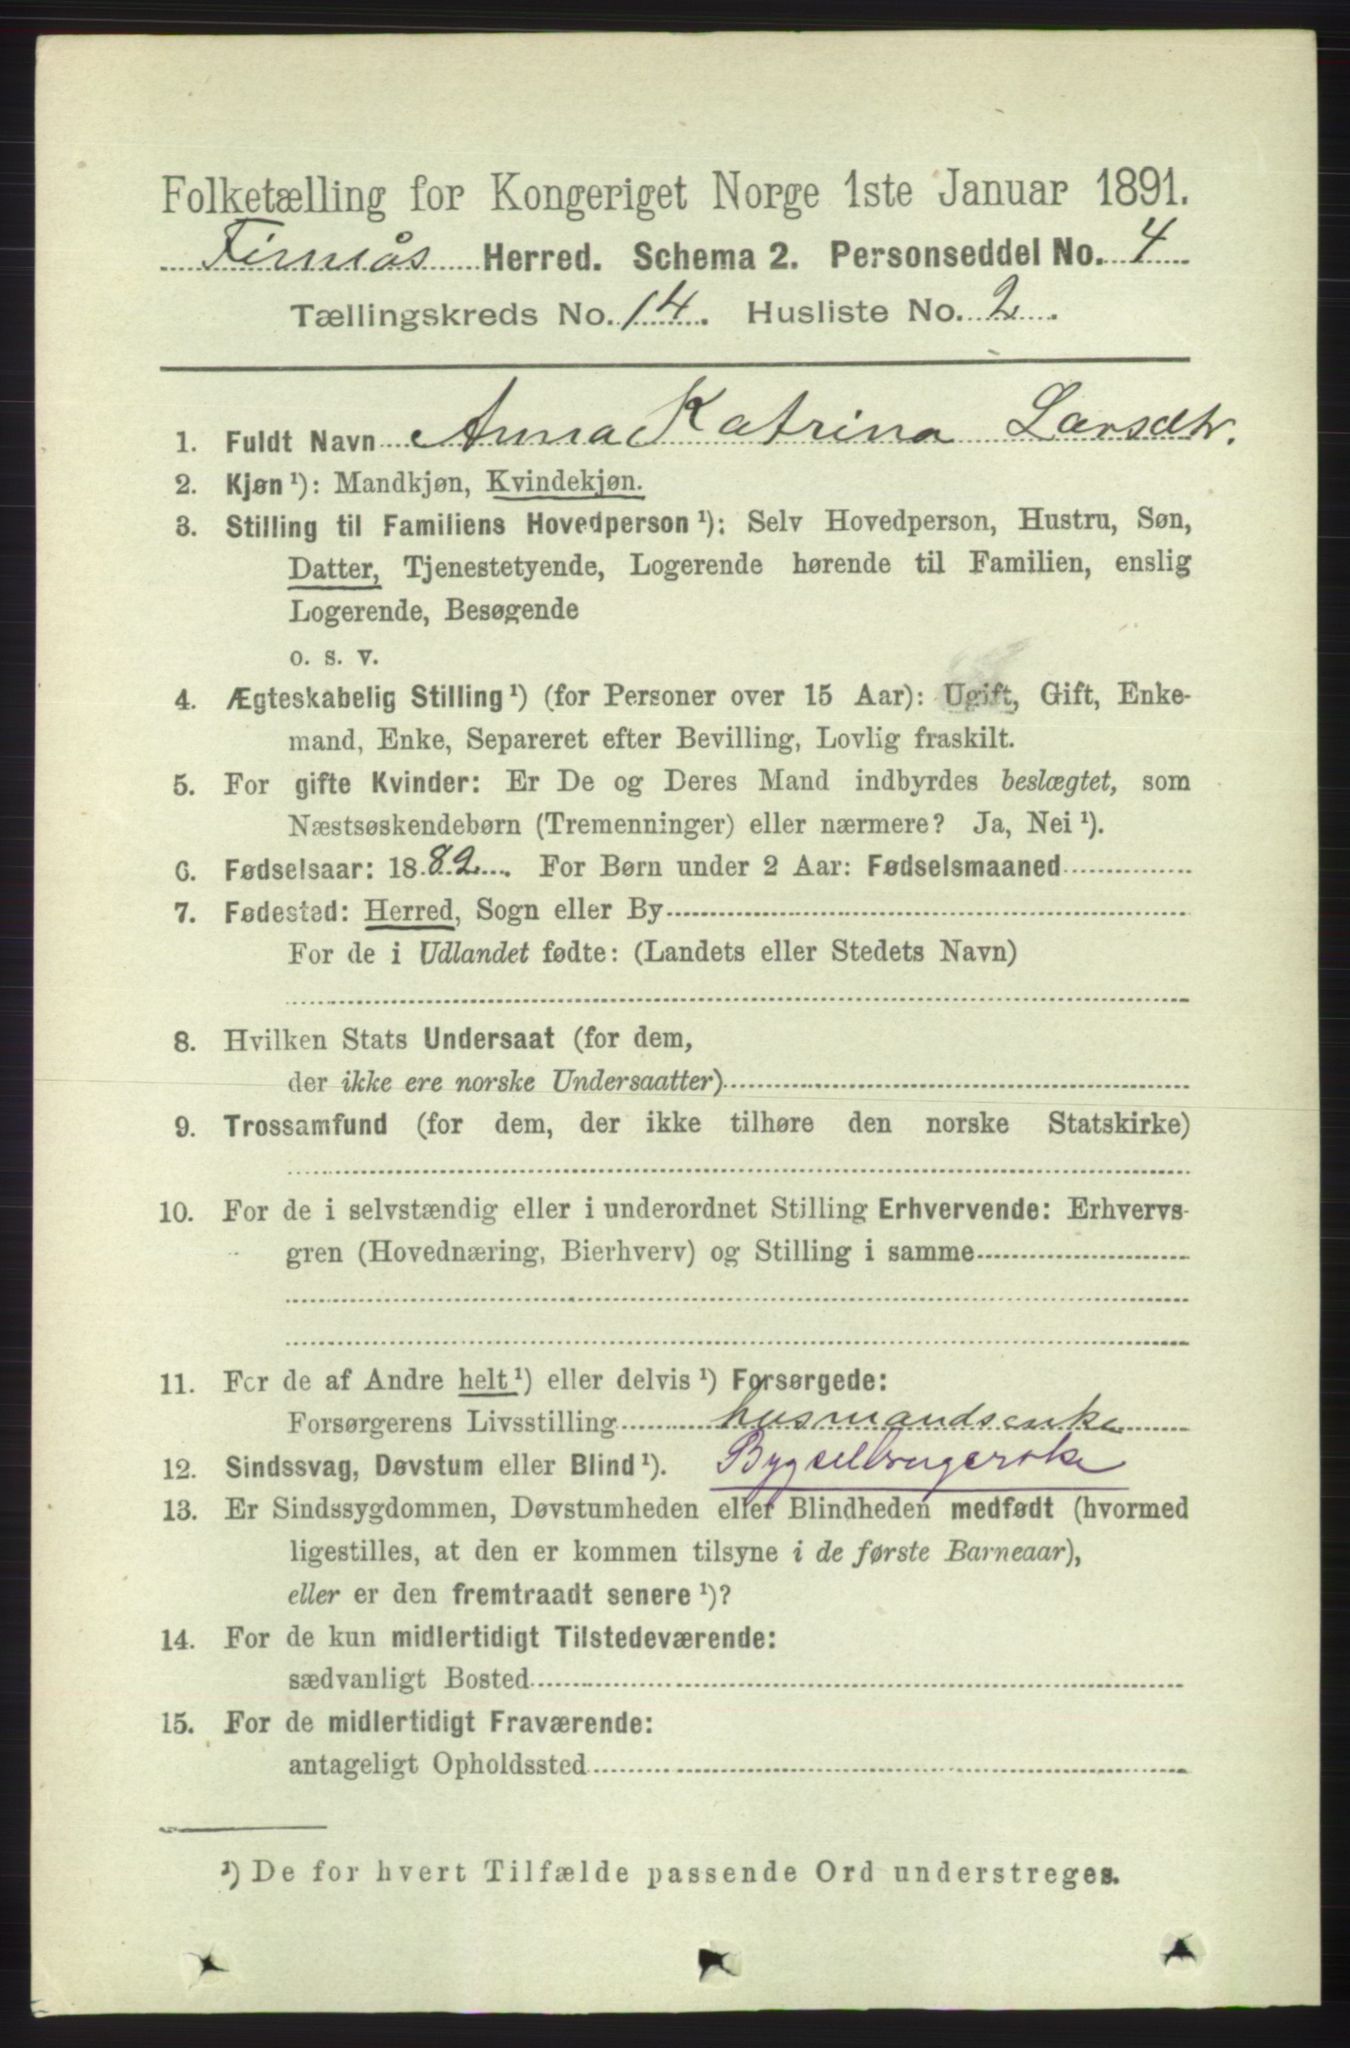 Folketælling for Kongeriget Norge 1ste Januar 1891.
Finnås Herred. Schema 2. Personseddel No. 4
Tællingskreds No. 14. Husliste No. 2.
1. Fuldt Navn Anna Katrina Larsdtr.
2. Kjøn ¹): Mandkjøn, Kvindekjøn.
3. Stilling til Familiens Hovedperson ¹): Selv Hovedperson, Hustru, Søn,
Datter, Tjenestetyende, Logerende hørende til Familien, enslig
Logerende, Besøgende
o. s. v.
4. Ægteskabelig Stilling ¹) (for Personer over 15 Aar): Ugift, Gift, Enke-
mand, Enke, Separeret efter Bevilling, Lovlig fraskilt.
5. For gifte Kvinder: Er De og Deres Mand indbyrdes beslægtet, som
Næstsøskendebørn (Tremenninger) eller nærmere? Ja, Nei ¹).
6. Fødselsaar: 1882. For Børn under 2 Aar: Fødselsmaaned
7. Fødested: Herred, Sogn eller By
For de i Udlandet fødte: (Landets eller Stedets Navn)
8. Hvilken Stats Undersaat (for dem,
der ikke ere norske Undersaatter)
9. Trossamfund (for dem, der ikke tilhøre den norske Statskirke)
10. For de i selvstændig eller i underordnet Stilling Erhvervende: Erhvervs-
gren (Hovednæring, Bierhverv) og Stilling i samme
11. For de af Andre helt ¹) eller delvis ¹) Forsørgede:
Forsørgerens Livsstilling husmandsenke
12. Sindssvag, Døvstum eller Blind ¹). Bygselbrugerske
13. Er Sindssygdommen, Døvstumheden eller Blindheden medfødt (hvormed
ligestilles, at den er kommen tilsyne i de første Barneaar),
eller er den fremtraadt senere ¹)?
14. For de kun midlertidigt Tilstedeværende:
sædvanligt Bosted
15. For de midlertidigt Fraværende:
antageligt Opholdssted
¹) De for hvert Tilfælde passende Ord understreges.